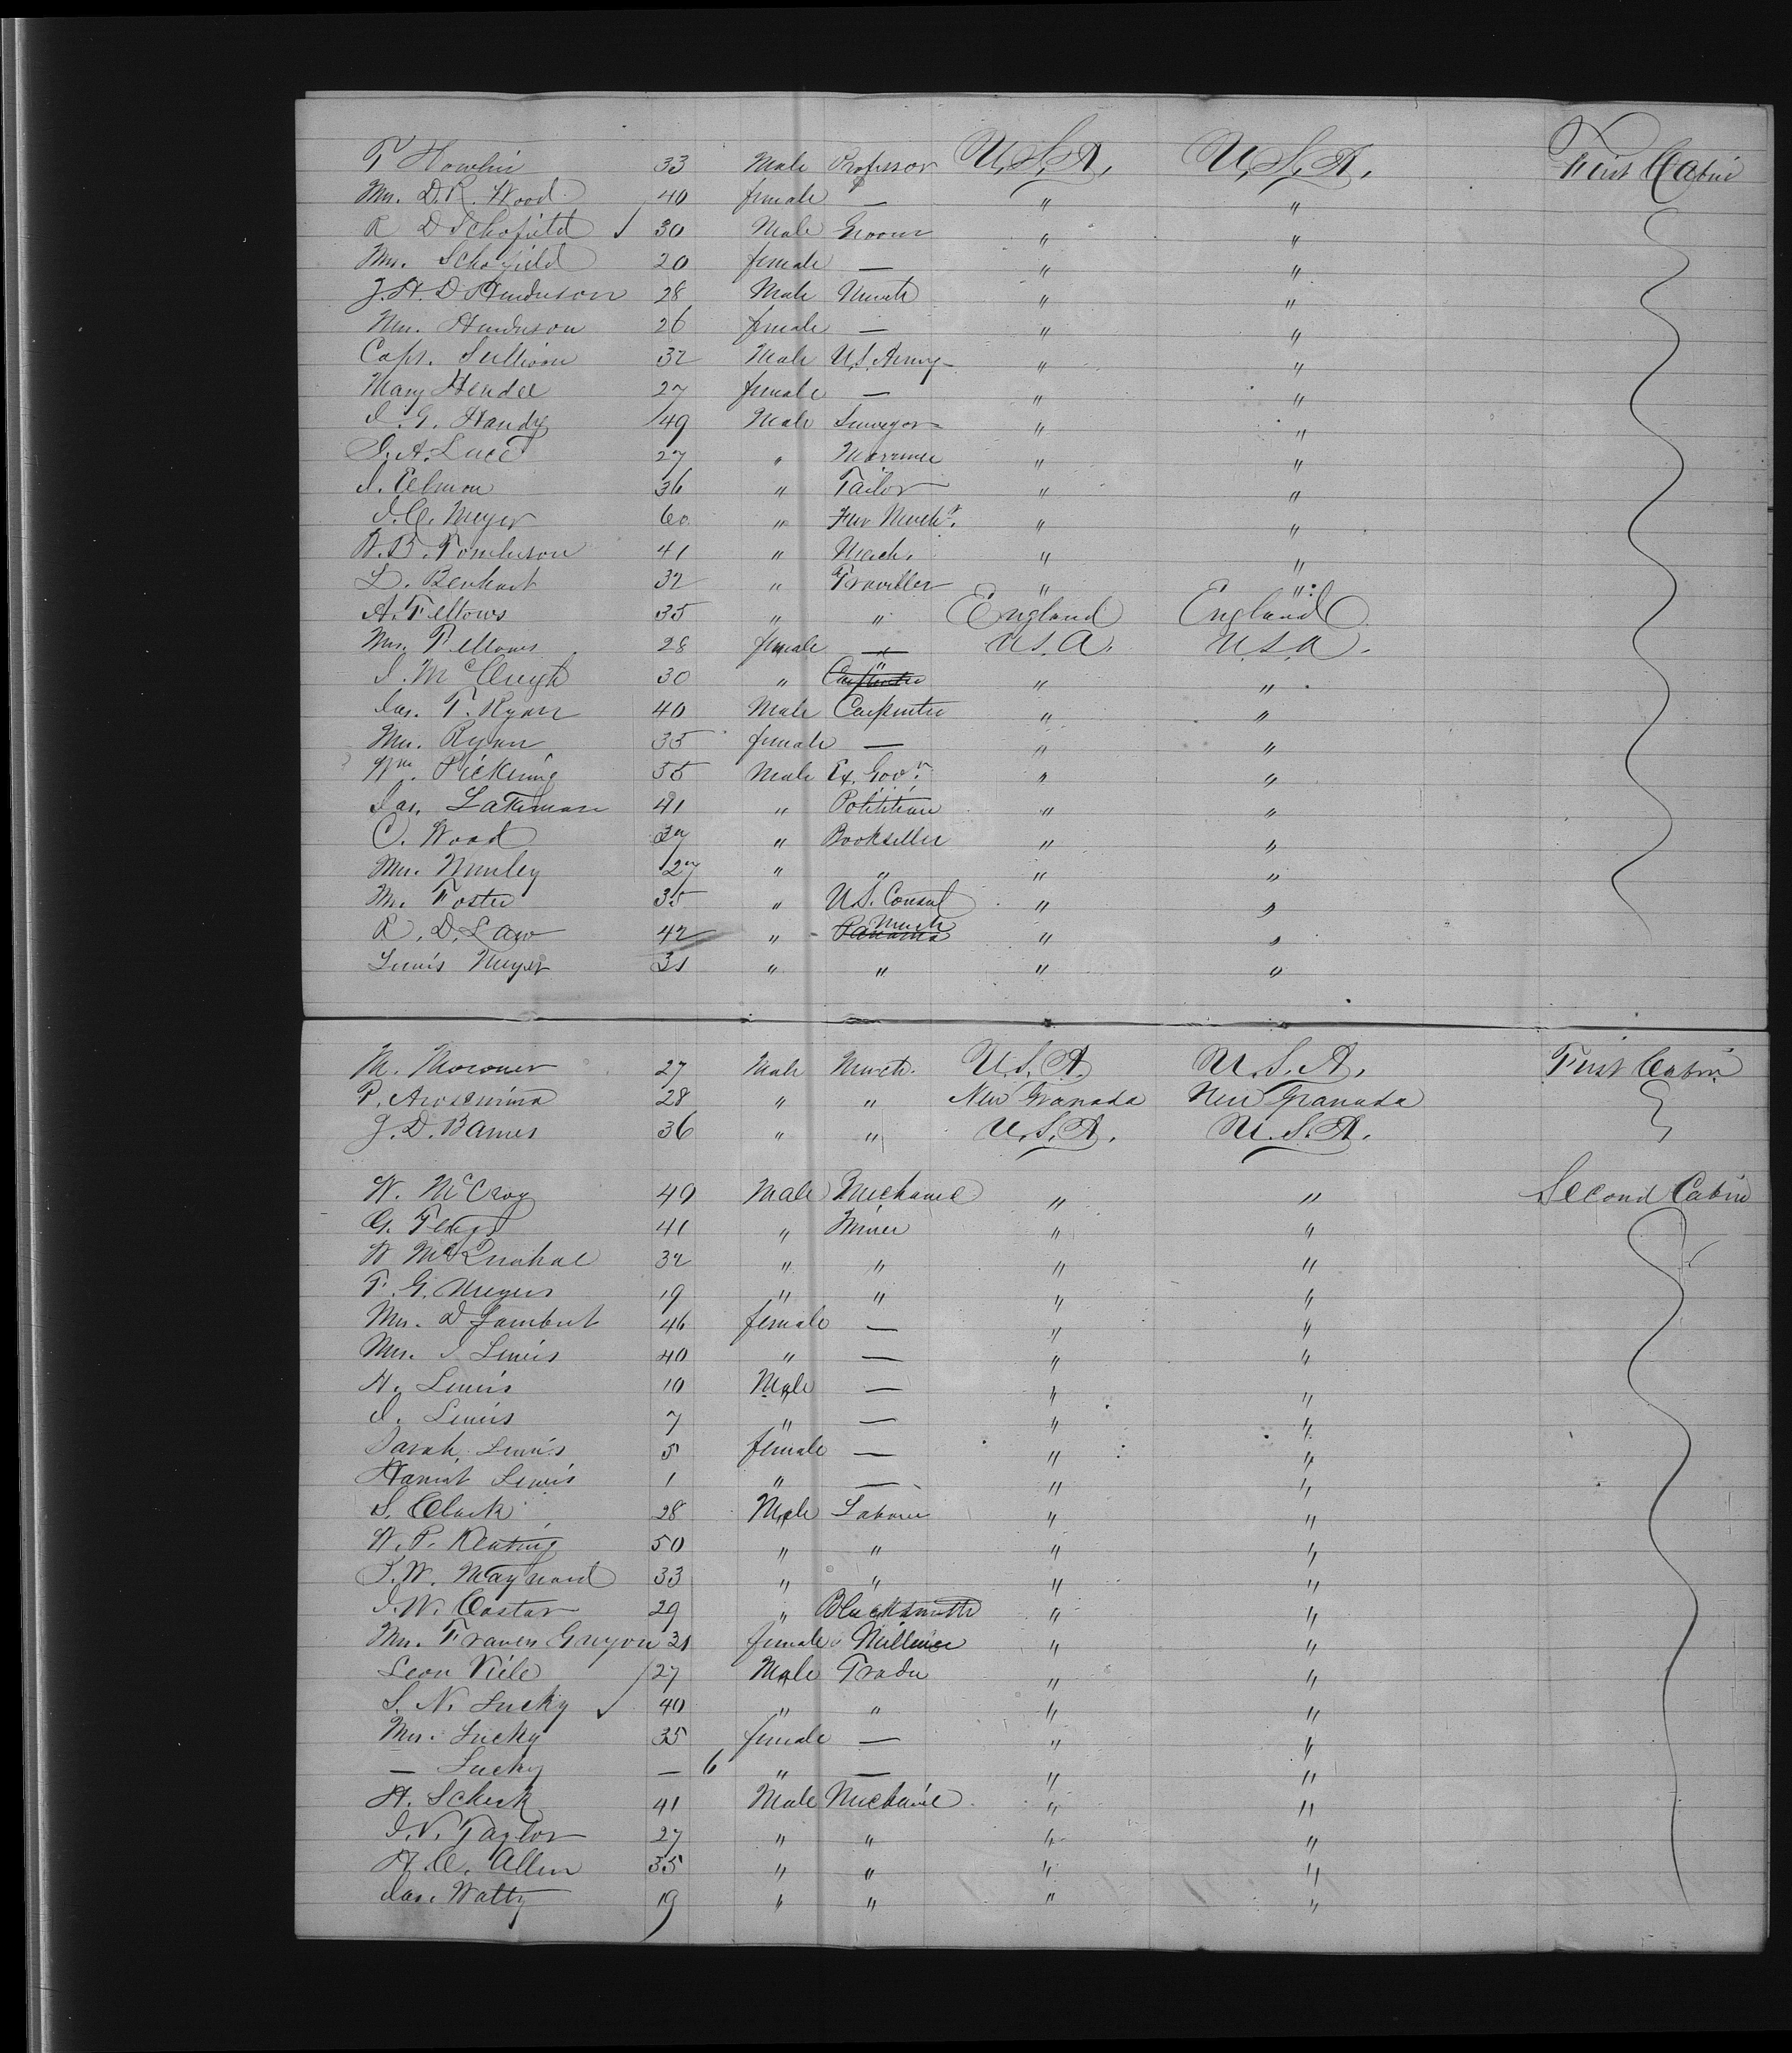 T Hamlin 33 Male Professor U.S.A. U.S.A. First Cabin
Mrs. D.R. Wood 40 female — " "
R D Schofield ✓ 30 Male Groom " "
Mrs. Schofield 20 female — " "
J.H.D Henderson 28 Male Merch " "
Mrs. Henderson 26 female — " "
Capt. Sullivan 32 Male U.S. Army " "
Mary Hendee 27 female — " "
I. G. Handy 49 Male Surveyor " "
I. A. Luce 27 " Marriner " "
I. Elmon 36 " Tailor " "
I. C. Meyer 60 " Fur Mercht. " "
W. B. Tomlinson 41 " Merch. " "
L. Benhart 32 " Traveller " "
A. Fellows 35 " " England England
Mrs. Fellows 28 female — U.S.A. U.S.A.
I. McClugh 30 " Carpenter " "
Jas. T. Ryan 40 Male Carpenter " "
Mrs. Ryan 35 female — " "
Wm. Pickering 55 Male Ex. Govr. " "
Jas. Lattiman 41 " Polititian " "
C. Wood 37 " Bookseller " "
Mr. Nunley 27 " " " "
Mr. Foster 35 " U.S. Consul " "
R. D. Law 42 " Panama Merch " "
Lewis Meyer 31 " " " "
M. Morower 27 Male Merch. U.S.A. U.S.A. First Cabin
P. Arosemina 28 " " New Granada New Granada
J. D. Barnes 36 " " U.S.A. U.S.A.
W. McCroy 49 Male Mechanic " " Second Cabin
G. 41 " Miner " "
W 32 " " " "
T. G. Meyers 19 " " " "
Mrs. D Lambert 46 female — " "
Mrs. I Lewis 40 " — " "
H. Lewis 10 Male — " "
I. Lewis 7 " — " "
Sarah Lewis 5 female — " "
Harriet Lewis 1 " — " "
S. Clark 28 Male Laborer " "
W. P. Keating 50 " " " "
S. W. Maynard 33 " " " "
I. W. Castar 29 " Blacksmith " "
Mrs. Frances Guyon 31 female Milliner " "
Leon Viele 27 Male Trader " "
S. N. Lucky ✓ 40 " " " "
Mrs. Lucky 35 female — " "
— Lucky — 6 " — " "
H. Scherk 41 Male Mechanic " "
I. V. Taylor 27 " " " "
H. C. Allen 35 " " " "
Jas. Watty 19 " " " "